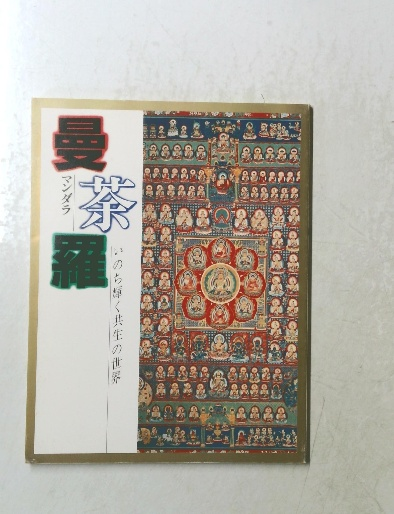 曼荼羅
マンダラ
いのち輝く共生の世界